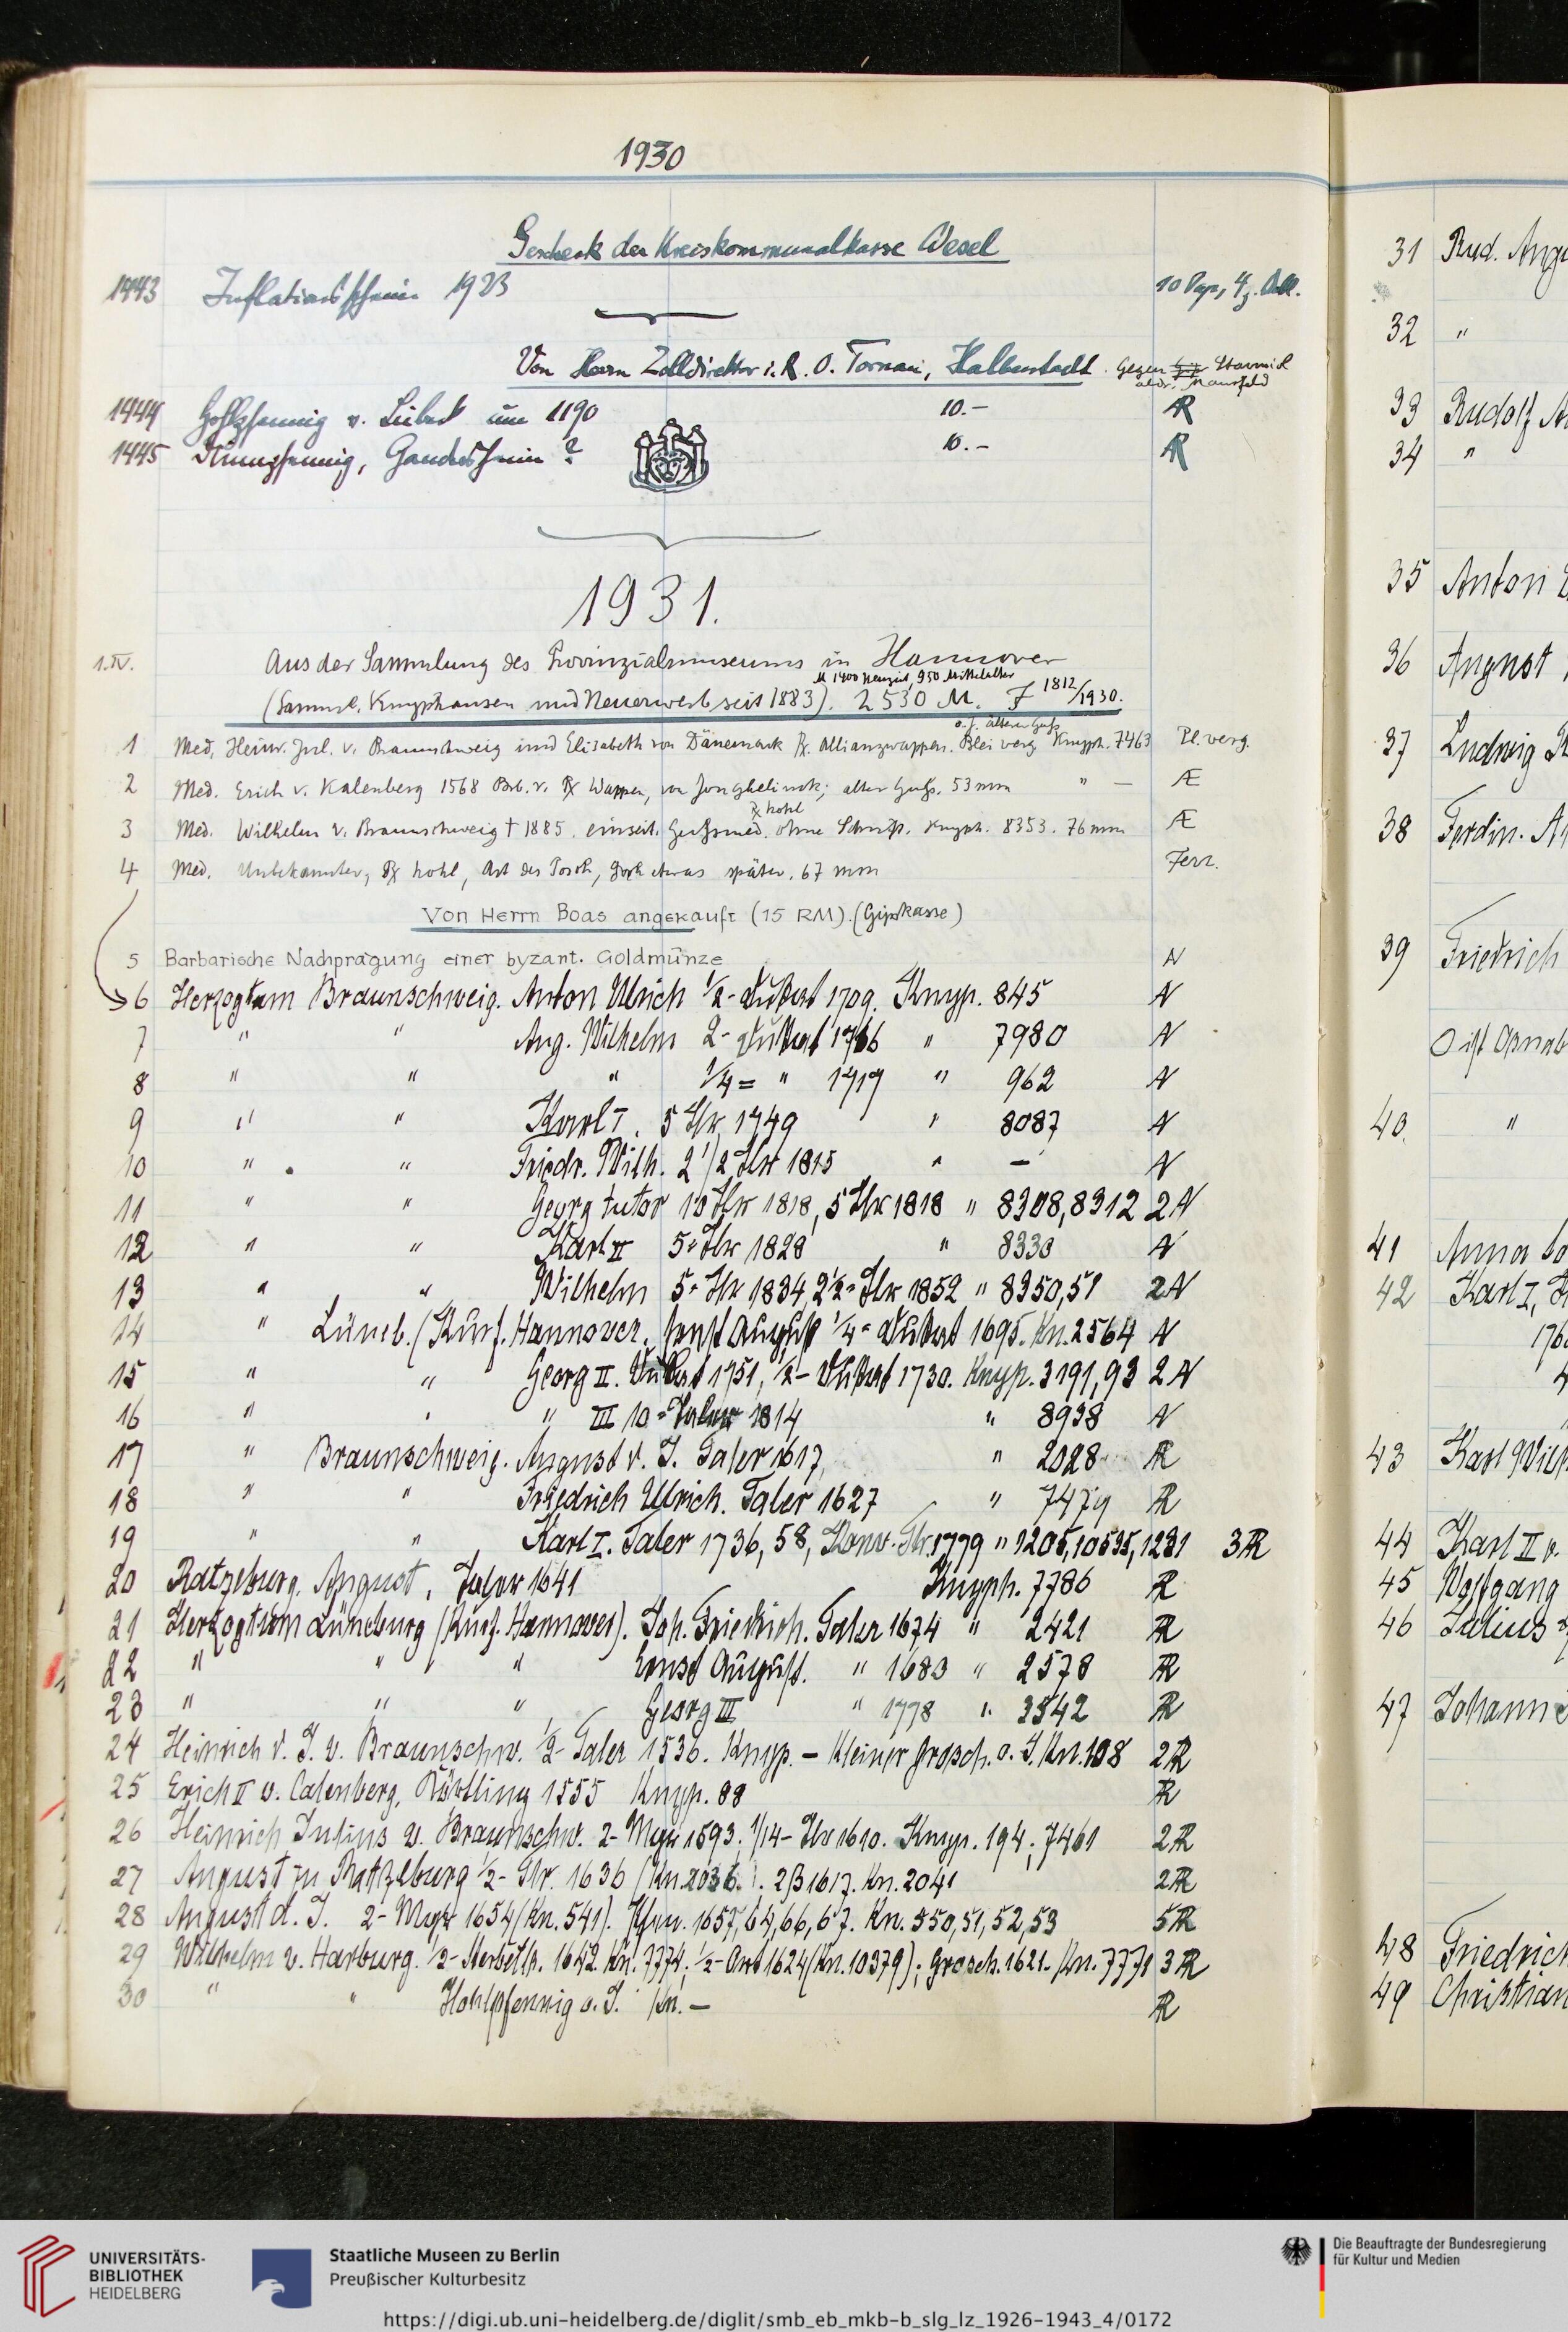 1930
Geschenk der Kreiskommunalkasse Wesel
1443 Inflationsschein 1923 10 Pap.,
Von Herrn Zolldirektor i. R. O. Tornau, Halberstadt. Gegen
Mansfeld
1444 Hohlpfennig v. Lübeck um 1190 10.– AR
1445 Dünnpfennig, Gandersheim? 10.– AR
1931.
1.IV. Aus der Sammlung des Provinzialmuseums in Hannover
M 1400 Neuzeit, 950 Mittelalter
(Samml. Knyphausen und Neuerwerb seit 1883). 2530 M. F 1812/1930.
o. J. älterer Guß
1 Med. Heinr. Jul. v. Braunschweig und Elisabeth von Dänemark Rx. Allianzwappen. Blei verg. Knyph. 7463 Pl. verg.
2 Med. Erich v. Kalenberg 1568 Brb. v. Rx Wappen, von Jonghelinck; alter Guß. 53 mm " — Æ
Rx hohl
3 Med. Wilhelm v. Braunschweig † 1885. einseit. Gußmed. ohne Schrift. Knyph. 8353. 76 mm Æ
4 Med. Unbekannter, Rx hohl, Art des Posch, doch etwas später. 67 mm Ferr.
Von Herrn Boas angekauft (15 RM). (Gipskasse)
5 Barbarische Nachprägung einer byzant. Goldmünze N
6 Herzogtum Braunschweig. Anton Ulrich 1/2-Dukat 1709. Knyp. 845 N
7 " " Aug. Wilhelm 2-Dukat " 7980 N
8 " " " 1/4= " 1719 " 962 N
9 " " Karl I. 5 Tlr 1749 " 8087 N
10 " " Friedr. Wilh. 2 1/2 Tlr 1815 " – N
11 " " Georg tutor 10 Tlr 1818, 5 Tlr 1818 " 8308, 8312 2 N
12 " " Karl II 5=Tlr 1828 " 8330 N
13 " " Wilhelm 5=Tlr 1834, 2 1/2=Tlr 1852 " 8350,51 2 N
14 " Lüneb. (Kurf. Hannover. Ernst August 1/4=Dukat 1695. Kn. 2564 N
15 " " Georg II. Dukat 1751, 1/2-Dukat 1730. Knyp. 3191, 93 2 N
16 " " " III 10=Taler 1814 " 8938 N
17 " Braunschweig. August d. J. Taler 1617, " 2028 AR
18 " " Friedrich Ulrich. Taler 1627 " 7479 AR
19 " " Karl I. Taler 1736, 58, Konv. Tlr. 1779 " 1205, 10535, 1231 3 AR
20 Ratzeburg. August. Taler 1641 Knyph. 7786 AR
21 Herzogtum Lüneburg (Kurf. Hannover). Joh. Friedrich. Taler 1674 " 2421 AR
22 " " " Ernst August. " 1680 " 2578 AR
23 " " " Georg III " 1778 " 3542 AR
24 Heinrich d. J. v. Braunschw. 1/2-Taler 1536. Knyp. – Kleiner Grosch. o. J. Kn. 108 2 AR
25 Erich II v. Calenberg, Körtling 1555 Knyp. 88 AR
26 Heinrich Julius v. Braunschw. 2-Mgr 1593, 1/14-Tlr 1610. Knyp. 194; 7461 2 AR
27 August zu Ratzeburg 1/2-Tlr. 1636 (Kn. 2036). 2ß 1617. Kn. 2041 2 AR
28 August d. J. 2-Mgr 1654 (Kn. 541). 1657, 64, 66, 67. Kn. 550, 51, 52, 53 5 AR
29 Wilhelm v. Harburg. 1/2-Sterbetlr. 1642 Kn. 7774; 1/2-Ort 1624 (Kn. 10379); Grosch. 1621. Kn. 7771 3 AR
30 " " Hohlpfennig o. J. Kn. – AR
31 Rud. Aug
32 "
33 Rudolf
34 "
35 Anton
36 August
37 Ludwig
38 Ferdin.
39 Friedrich
40. "
41 Anna
42 Karl I,
43 Karl Wilh
44 Karl II v.
45 Wolfgang
46 Julius
47 Johann
48 Friedrich
49 Christian
UNIVERSITÄTS-
BIBLIOTHEK
HEIDELBERG
Staatliche Museen zu Berlin
Preußischer Kulturbesitz
Die Beauftragte der Bundesregierung
für Kultur und Medien
https://digi.ub.uni-heidelberg.de/diglit/smb_eb_mkb-b_slg_lz_1926-1943_4/0172